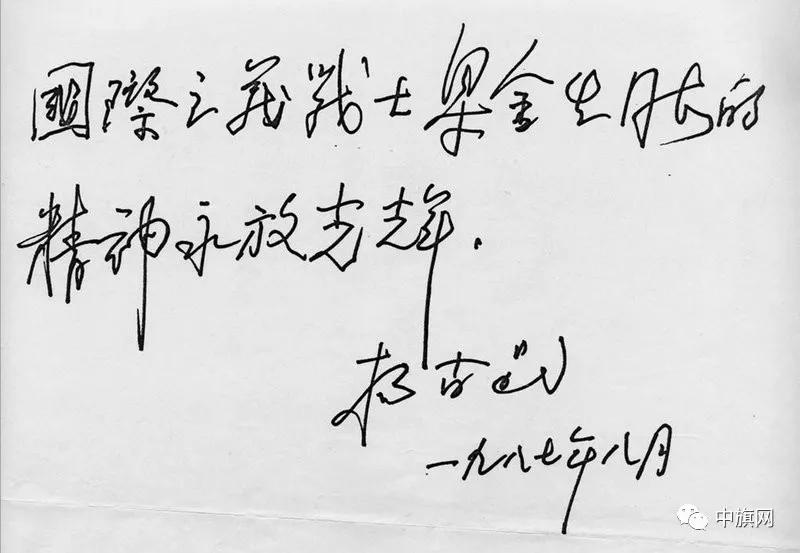 國際主義戰士梁金生同志的
精神永放光辉.
杨尚昆
一九八七年八月
中旗网